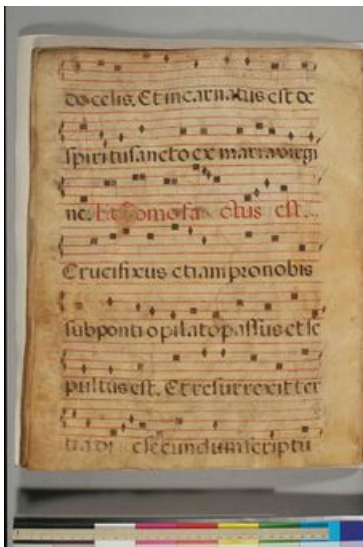 do celis. Et incarnatus est de
spiritu sancto ex maria virgi
ne. Et homo factus est.
Crucifixus etiam pro nobis
sub pontio pilato passus et se
pultus est. Et resurrexit ter
tia di e secundum scriptu